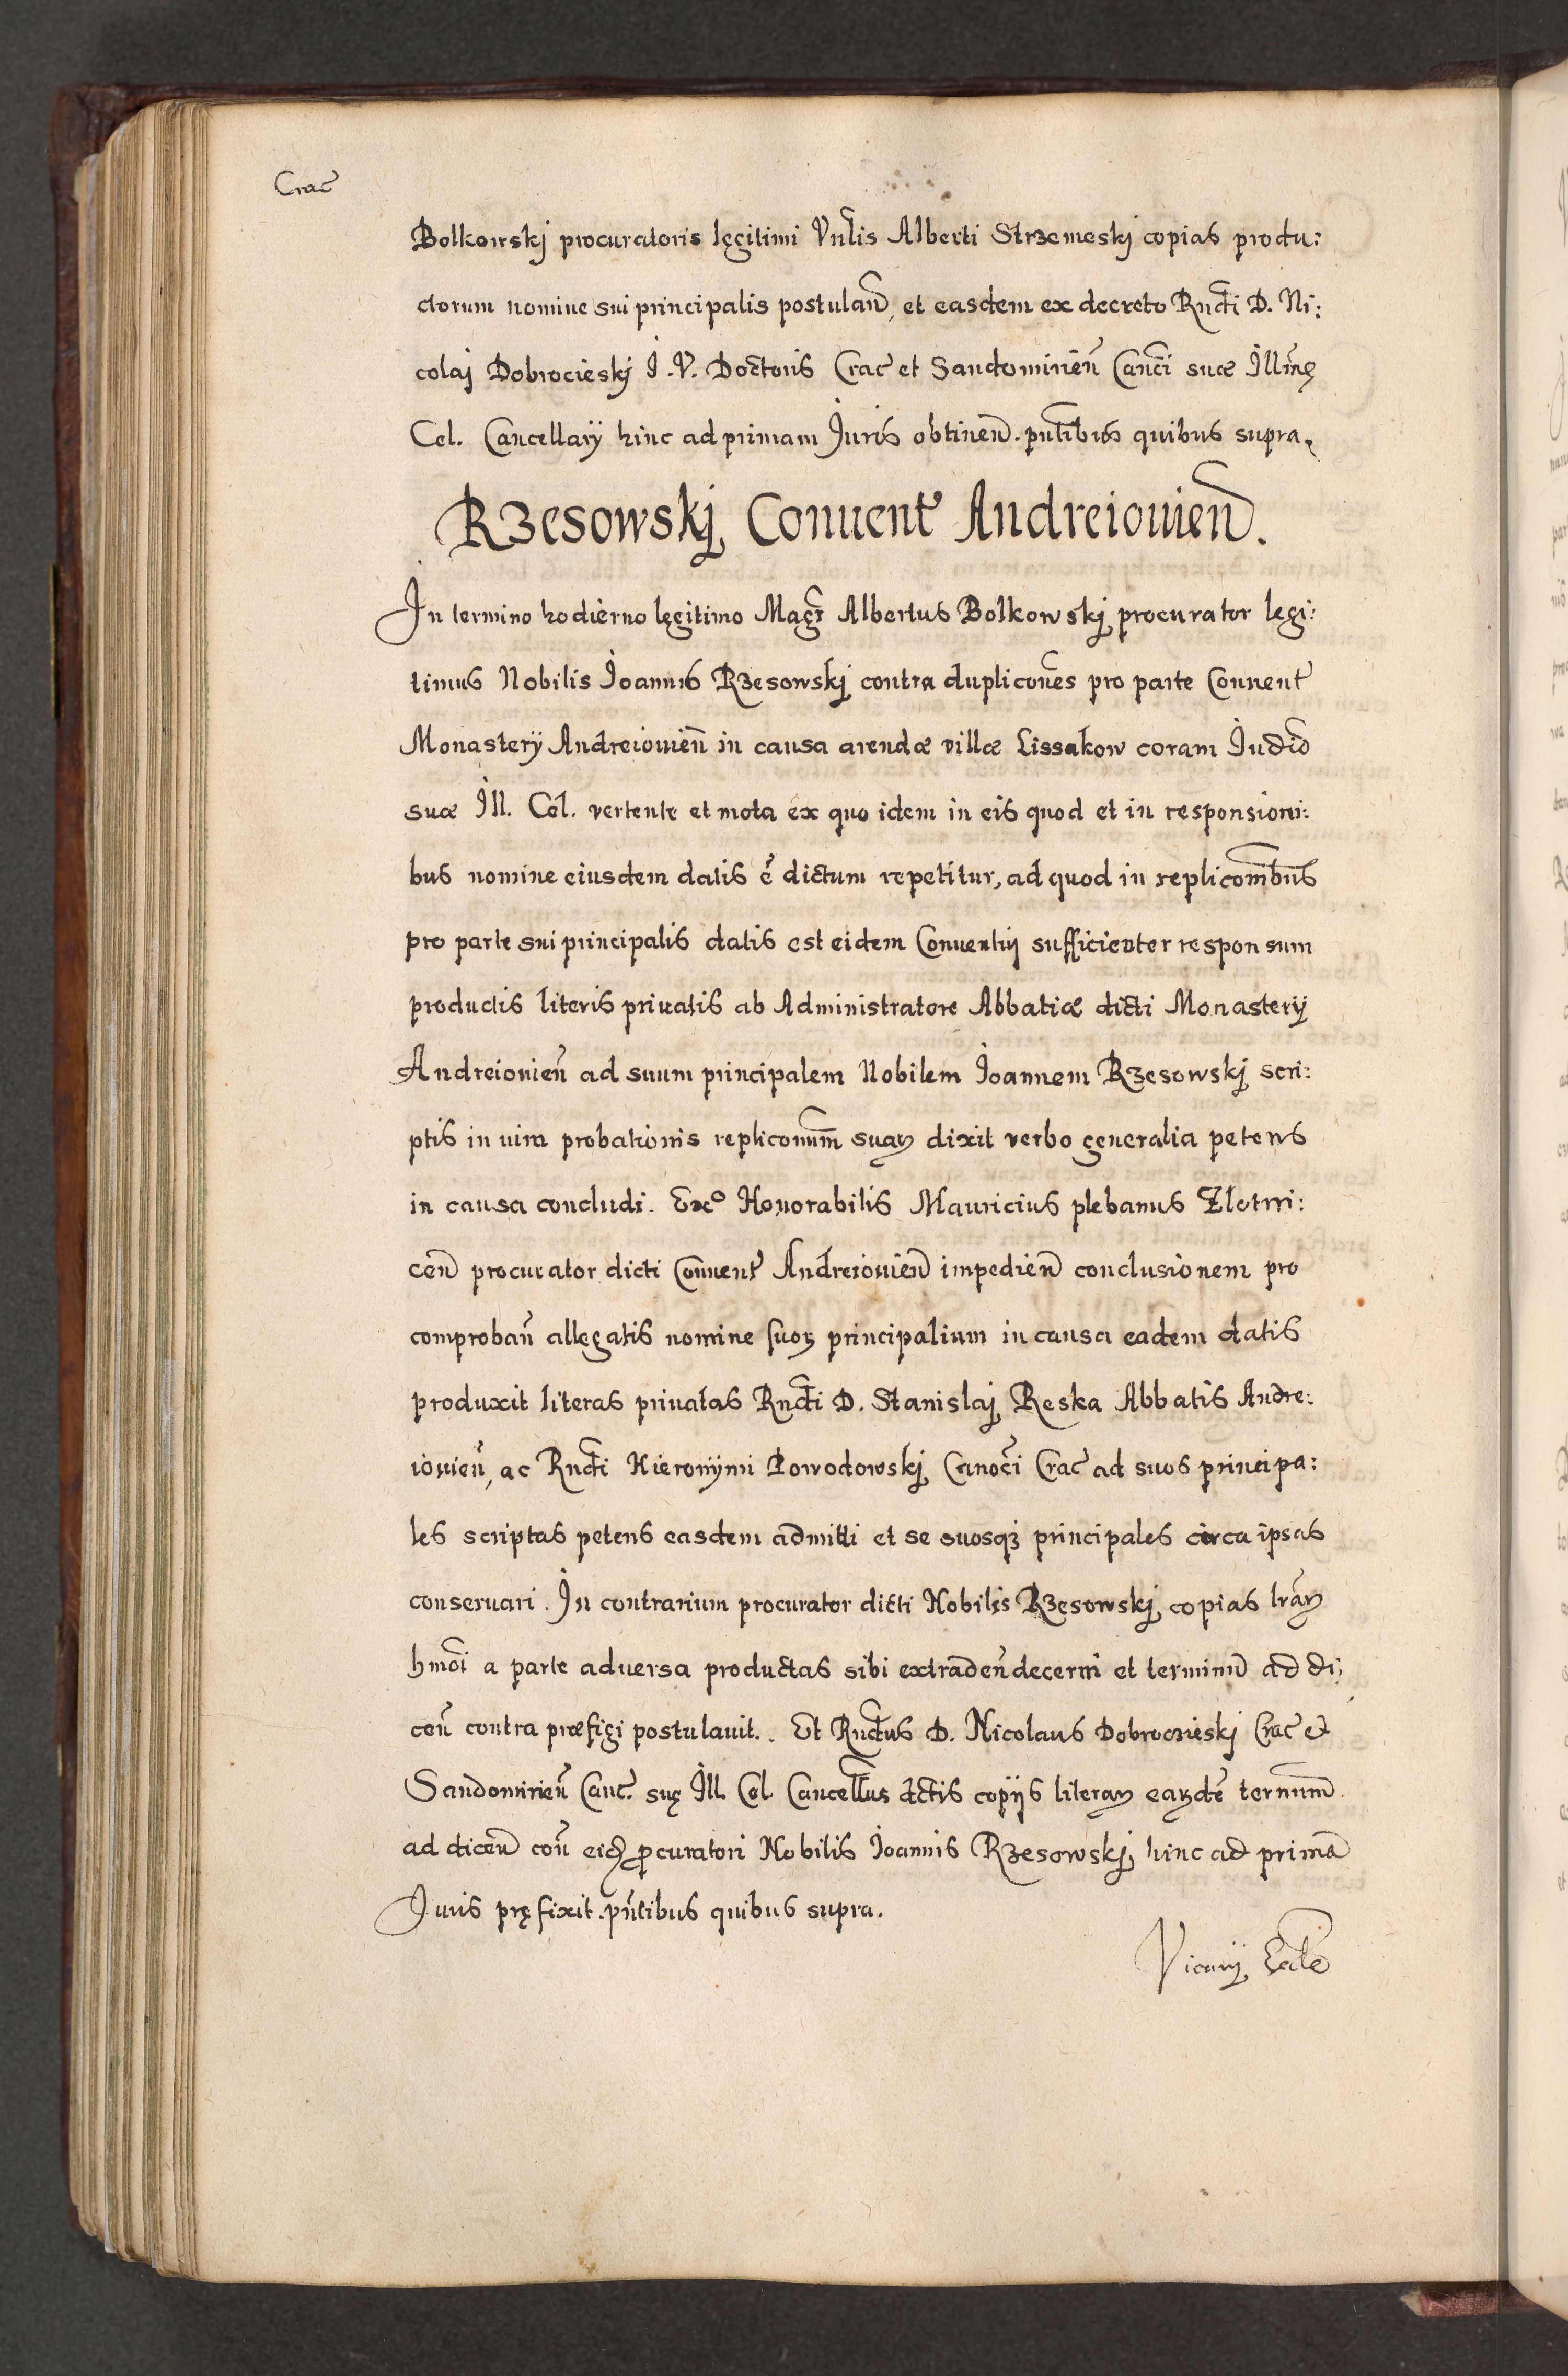 Crac̃
Bolkowskj procuratoris lęgitimi Vnłis Alberti Strzemeskj copias produ:
ctorum nomine sui principalis postulañ, et easdem ex decreto Rndi D. Ni:
colaj Dobrocieskj I. V. Doctoris Crac̃ et Sandomirieñ Canci suæ Illmę
Cel. Cancellarÿ hinc ad primam Iuris obtineñ. pñtibus quibus supra.
Rzesowskj Conuent̃ Andreiouieñ.
In termino hodierno lęgitimo Magr̃ Albertus Bolkowskj procurator legi:
timus Nobilis Ioannis Rzesowskj contra duplicões pro parte Conuent̃
Monasterÿ Andreiouieñ in causa arendæ villæ Lissakow coram Iudiõ
suæ Ill. Cel. vertente et mota ex quo idem in eis quod et in responsioni:
bus nomine eiusdem datis ẽ dictum repetitur, ad quod in repliconibus
pro parte sui principalis datis est eidem Conuentuj sufficienter responsum
productis literis priuatis ab Administratore Abbatiæ dicti Monasterÿ
Andreiouieñ ad suum principalem Nobilem Ioannem Rzesowskj scri:
ptis in uim probationis repliconum̃ suaꝝ dixit verbo generalia petens
in causa concludi. Exº Honorabilis Mauricius plebanus Złotni:
ceñ procurator dicti Conuent̃ Andreiouieñ impedieñ conclusionem pro
comprobañ allęgatis nomine suoꝝ principalium in causa eadem datis
produxit literas priuatas Rndi D. Stanislaj Reska Abbatis Andre:
iouieñ, ac Rndi Hieronÿmi Powodowskj Canoci Crac̃ ad suos principa:
les scriptas petens easdem admitti et se suosqꝫ principales circa ipsas
conseruari. In contrarium procurator dicti Nobilis Rzęsowskj copias lrãꝝ
hmoi a parte aduersa productas sibi extradeñ decerni et terminũ ad di:
ceñ contra præfigi postulauit. Et Rndus D. Nicolaus Dobrocieskj Crac̃ et
Sandomirieñ Canc̃. suę Ill. Cel. Cancellus dctis copÿs literaꝝ eaꝝdẽ ternum̃
ad diceñ coñ eidꝫ ꝓcuratori Nobilis Ioannis Rzesowskj hinc ad primã
Iuris pręfixit. pñtibus quibus supra.
Vicarÿ Eccłe